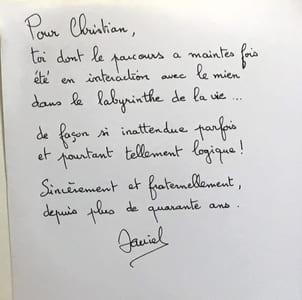 Pour Christian,
toi dont le parcours a maintes fois
été en interaction avec le mien
dans le labyrinthe de la vie ...
de façon si inattendue parfois
et pourtant tellement logique !
Sincèrement et fraternellement,
depuis plus de quarante ans.
Daniel